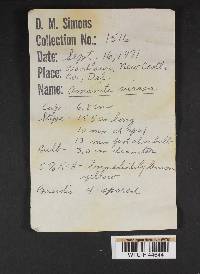 D. M. Simons
Collection No.: 1516
Date: Sept. 16, 1971
Place: New Castle
Co., Del.
Name: Amanita virosa
Cap 6.5 cm
Stipe - 15.5 cm long
10 mm at apex
13 mm just above bulb
Bulb - 3.0 cm diameter
KOH - Immediately
yellow
Basidia 4 spored